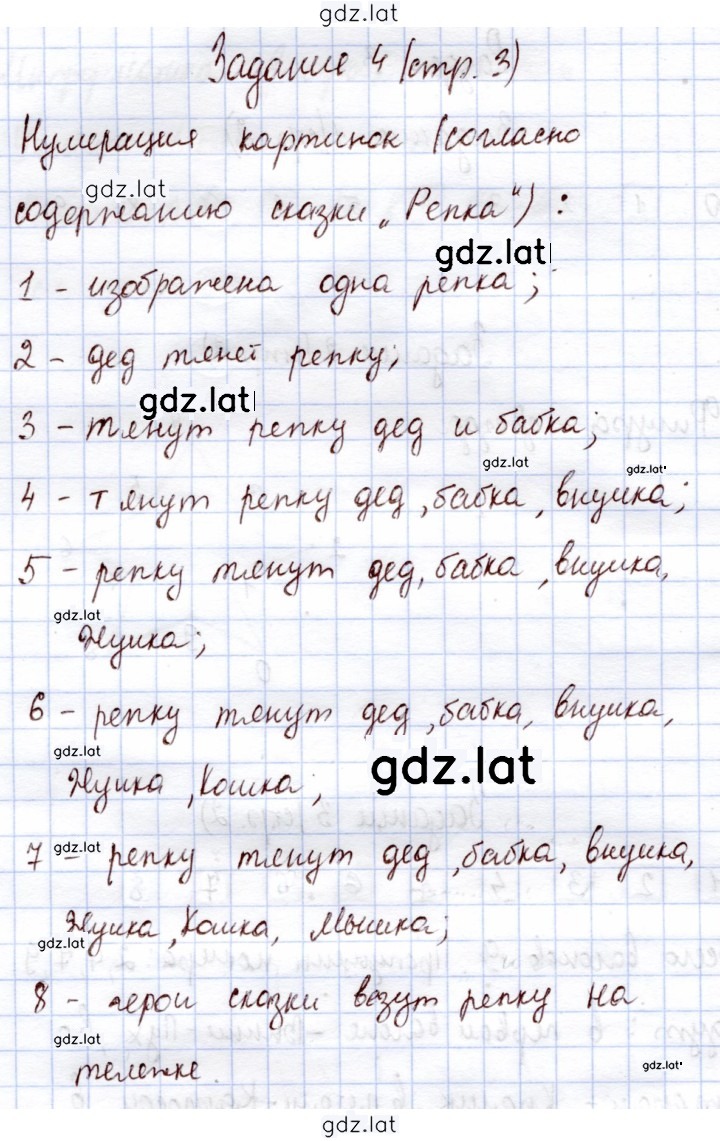 gdz.lat
Задание 4 (стр. 3)
Нумерация картинок (согласно
gdz.lat
содержанию сказки „Репка“) :
gdz.lat
1 - изображена одна репка;
2 - дед тянет репку;
gdz.lat
3 - тянут репку дед и бабка;
gdz.lat
gdz.lat
4 - тянут репку дед, бабка, внучка;
5 - репку тянут дед, бабка, внучка,
gdz.lat
Жучка;
6 - репку тянут дед, бабка, внучка,
gdz.lat
gdz.lat
Жучка, Кошка;
7 - gdz.lat репку тянут дед, бабка, внучка,
Жучка, Кошка, Мышка;
gdz.lat
8 - герои сказки везут репку на
gdz.lat
тележке.
gdz.lat
gdz.lat